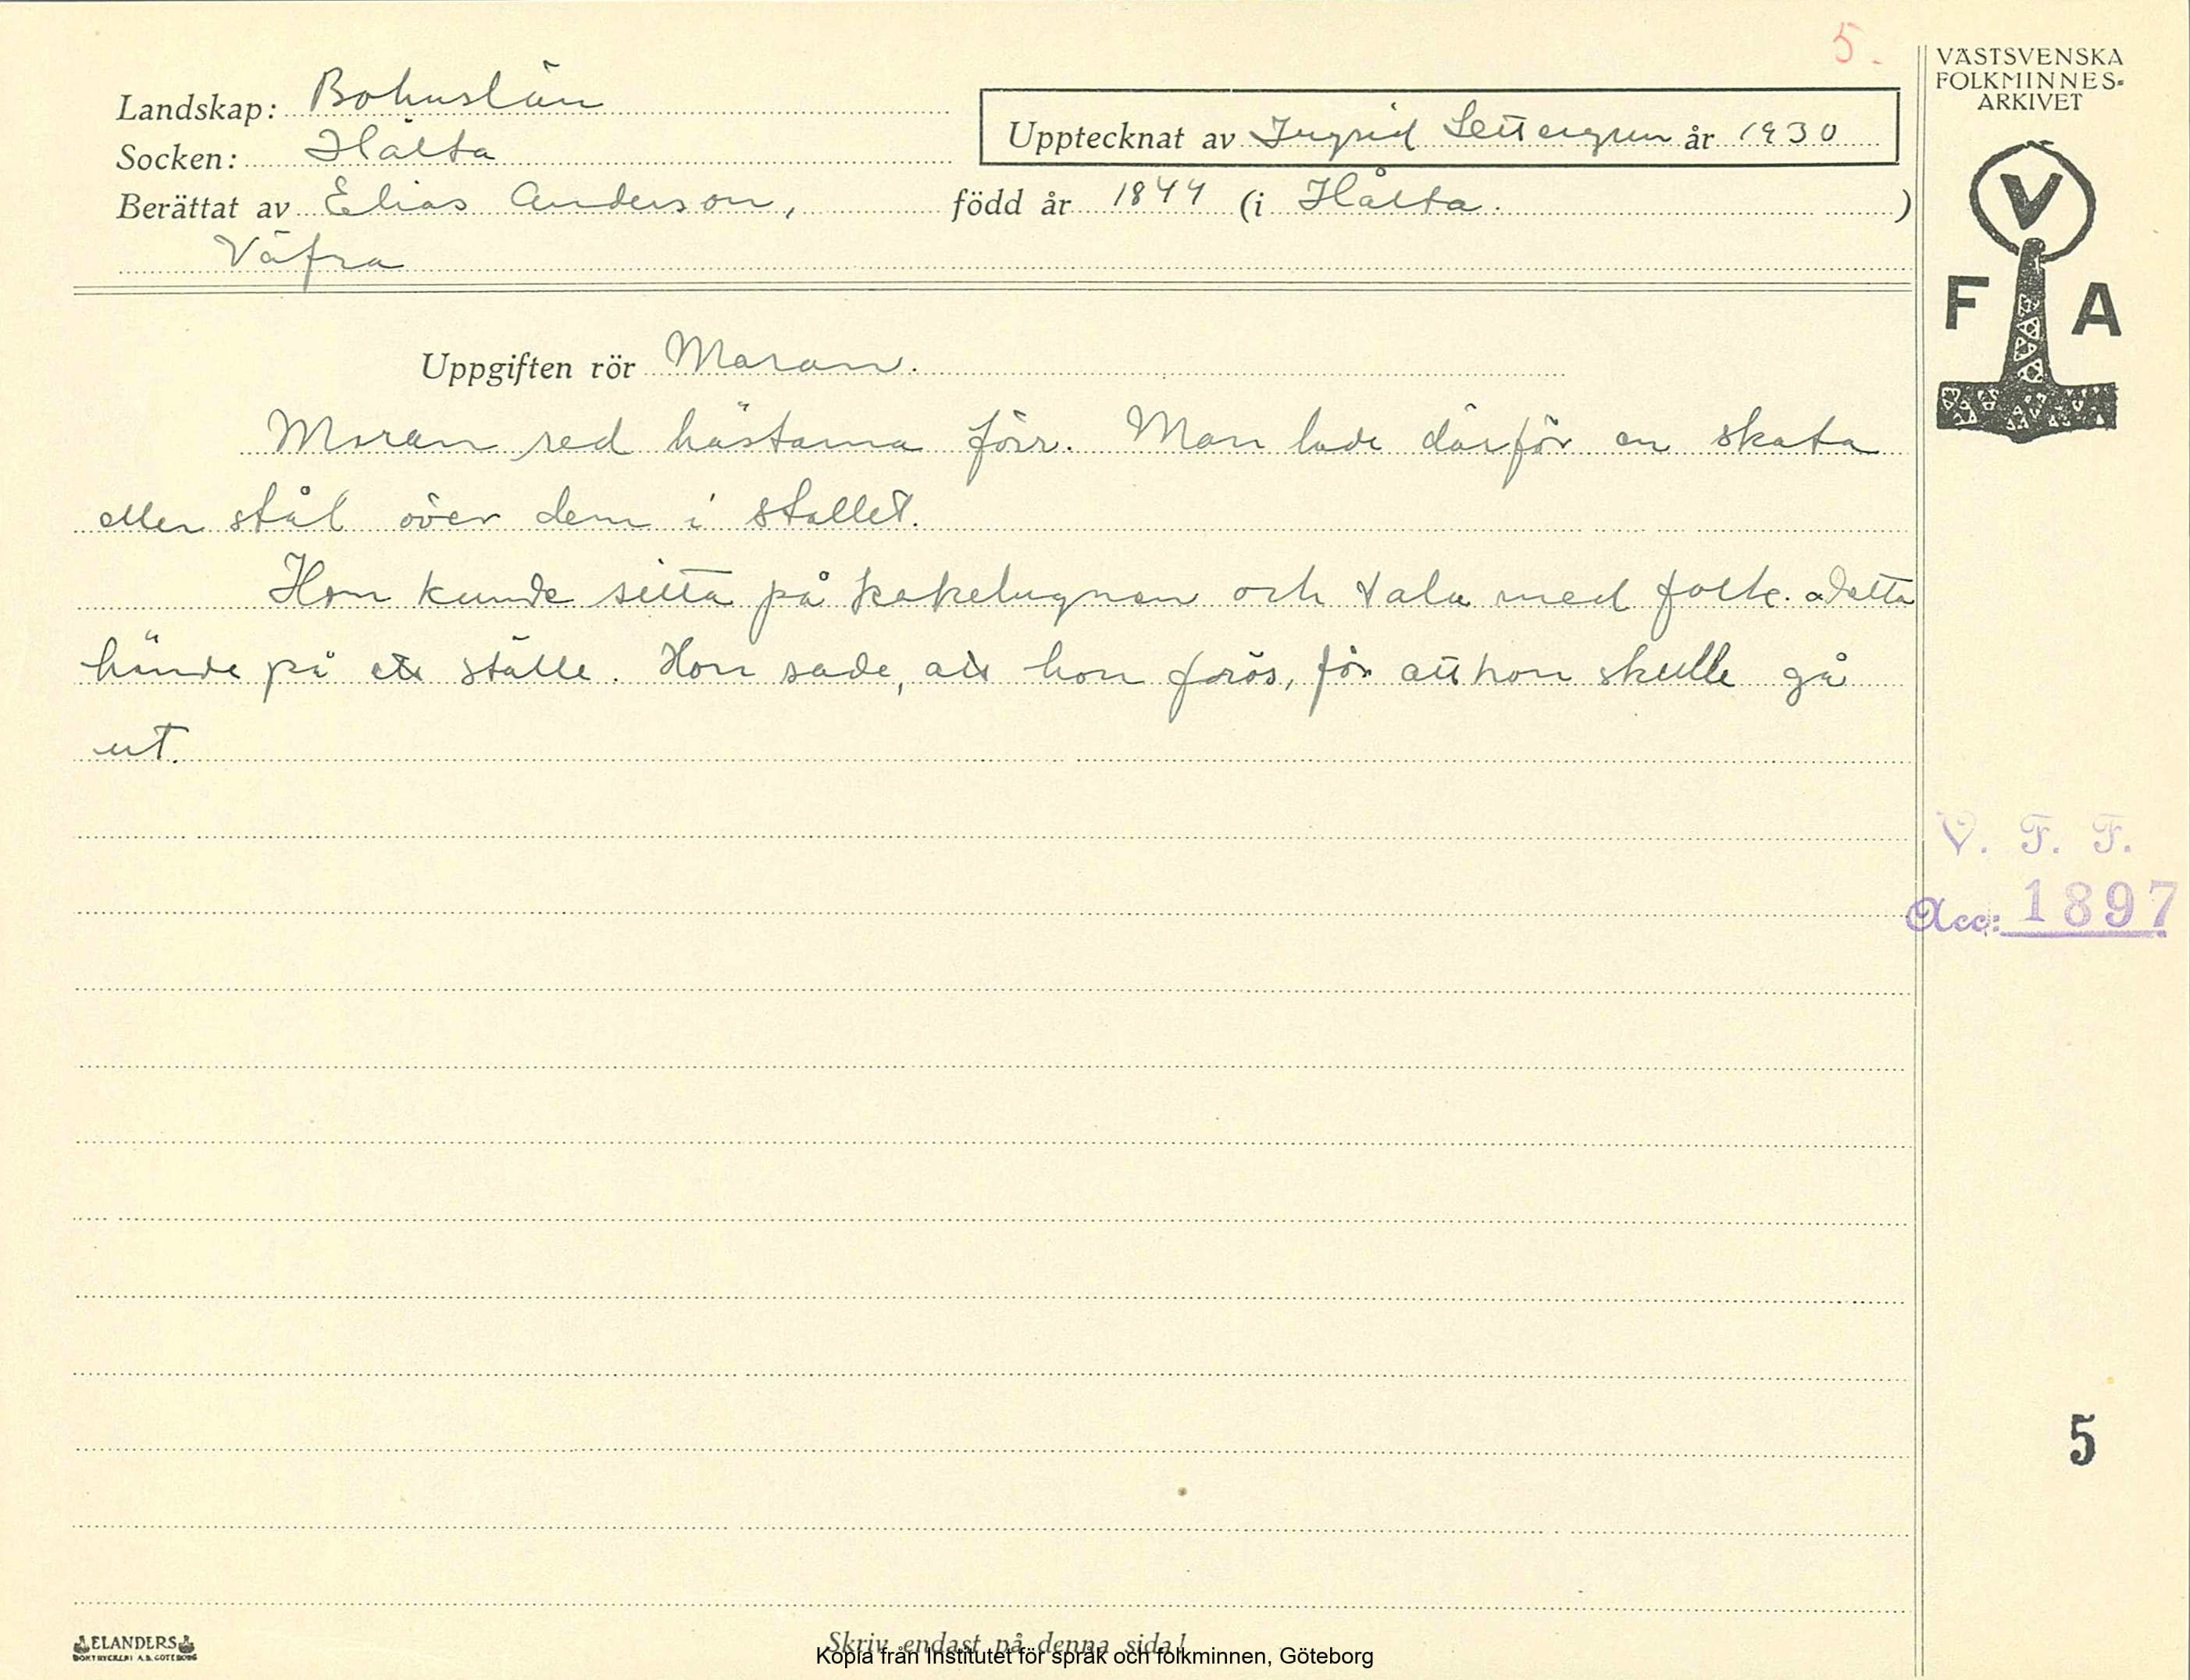 5.
VÄSTSVENSKA
FOLKMINNES-
ARKIVET
Landskap: Bohuslän
Upptecknat av Ingrid Settergren år 1930
Socken: Hålta
Berättat av Elias Anderson, född år 1844 (i Hålta. )
Väfra
V
F A
Uppgiften rör Maran.
Maran red hästarna förr. Man lade därför en skata
eller stål över dem i stallet.
Hon kunde sitta på kakelugnen och tala med folk. Detta
hände på ett ställe. Hon sade, att hon frös, för att hon skulle gå
ut.
V. F. F.
Acc: 1897
5
ELANDERS
BOKTRYCKERI A.B. GÖTEBORG
Skriv endast på denna sida!
Kopia från Institutet för språk och folkminnen, Göteborg